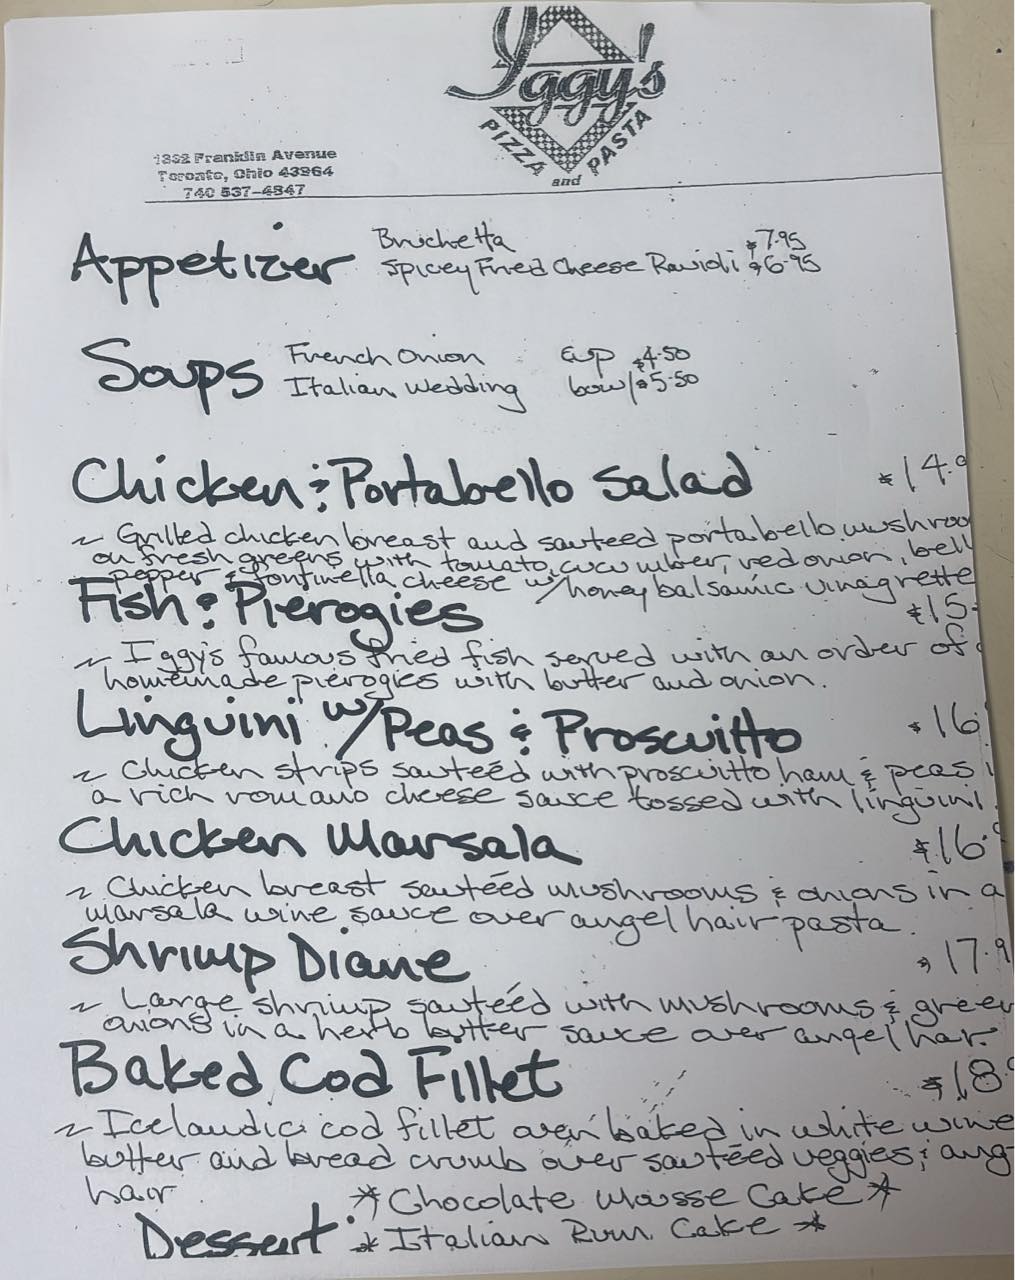 Yggy's
PIZZA and PASTA
1362 Franklin Avenue
Toronto, Ohio 43964
740 537-4847
Appetizer
Bruchetta $7.95
Spicey Fried Cheese Ravioli $6.95
Soups
French Onion cup $4.50
Italian Wedding bowl $5.50
Chicken & Portabello Salad $14.9
~ Grilled chicken breast and sauteed portabello mushroo
on fresh greens with tomato, cucumber, red onion, bell
pepper & fontinella cheese w/honey balsamic vinagrette
Fish & Pierogies $15.
~ Iggy's famous fried fish served with an order of
homemade pierogies with butter and onion.
Linguini w/Peas & Proscuitto $16.
~ Chicken strips sauteéd with proscuitto ham & peas i
a rich romano cheese sauce tossed with linguini.
Chicken Marsala $16.
~ Chicken breast sauteéd mushrooms & onions in a
marsala wine sauce over angel hair pasta.
Shrimp Diane $17.9
~ Large shrimp sauteéd with mushrooms & green
onions in a herb butter sauce over angel hair.
Baked Cod Fillet $18.
~ Icelandic cod fillet oven baked in white wine
butter and bread crumb over sauteéd veggies & ang
hair.
Dessert: *Chocolate Mousse Cake*
*Italian Rum Cake*